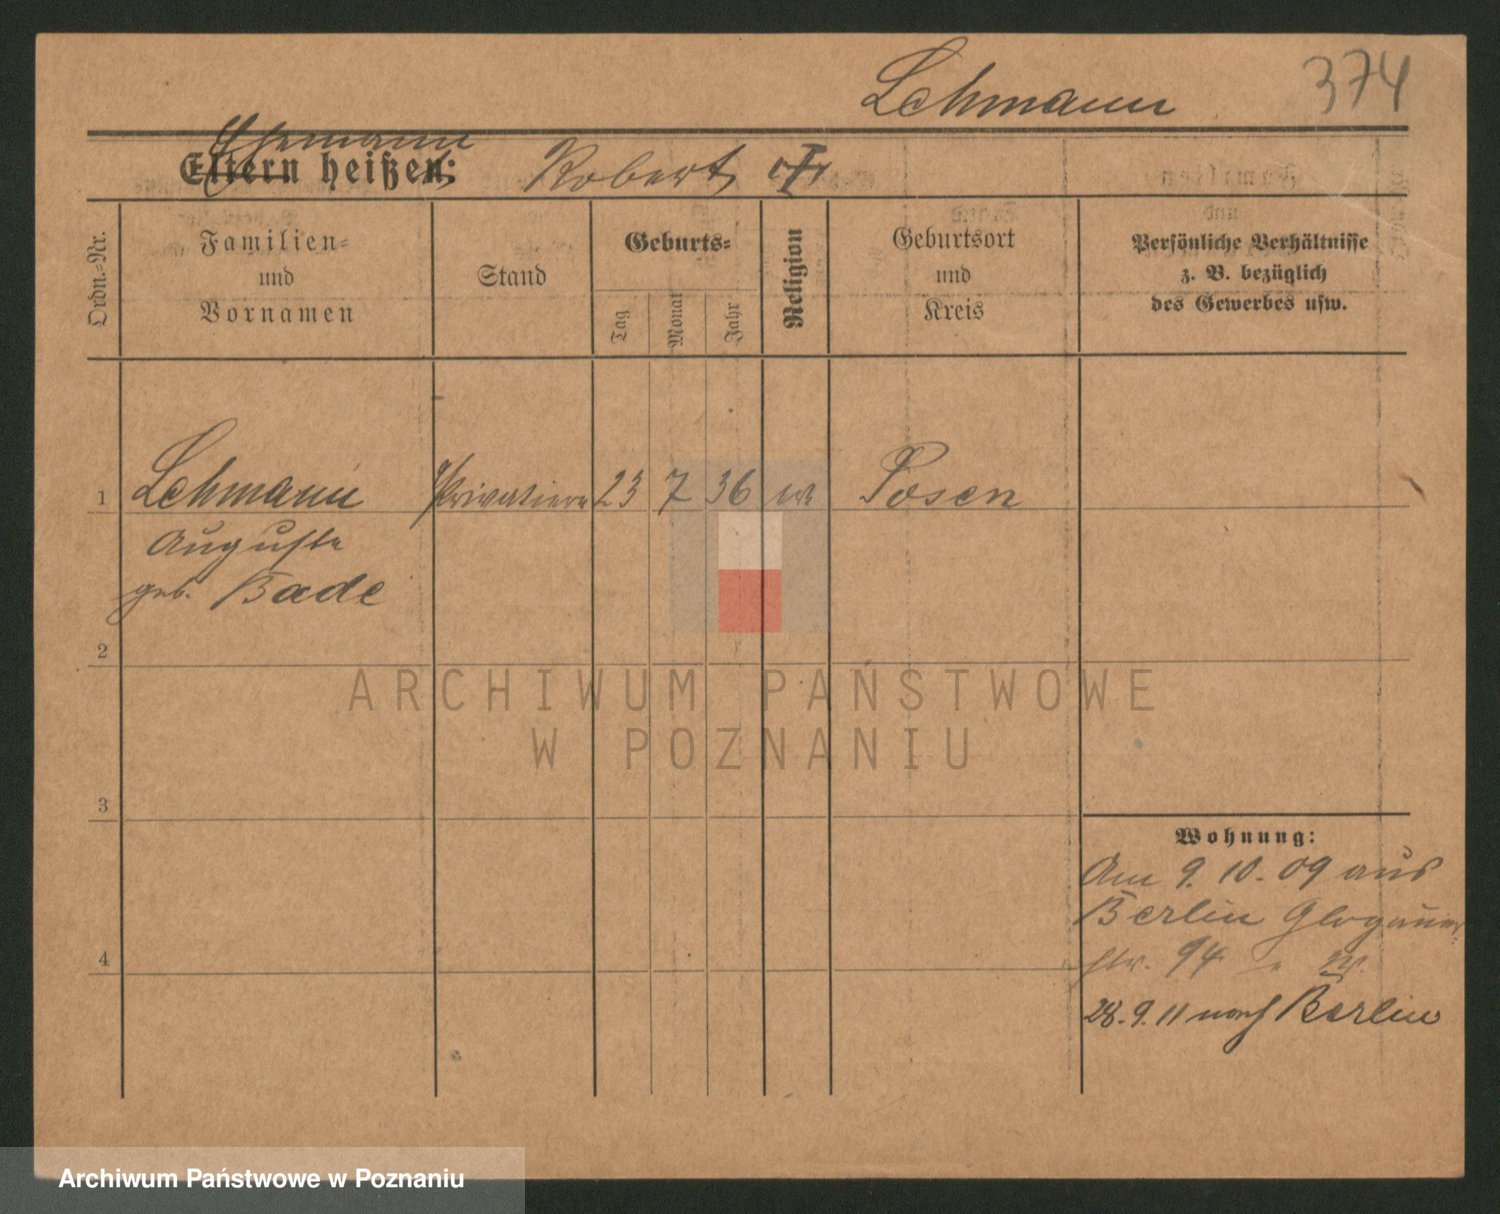 Lehmann 374
Ehemann
Eltern heißen: Robert
Ordn.-Nr.
Familien-
und
Vornamen
Stand
Geburts-
Tag
Monat
Jahr
Religion
Geburtsort
und
Kreis
Persönliche Verhältnisse
z. B. bezüglich
des Gewerbes usw.
1 Lehmann Privatiere 23 7 36 Posen
Auguste
geb. Bade
2
3
4
Wohnung:
Am 9. 10. 09 aus
Berlin Glogauer-
str. 94 W.
28. 9. 11 nach Berlin
ARCHIWUM PAŃSTWOWE
W POZNANIU
Archiwum Państwowe w Poznaniu